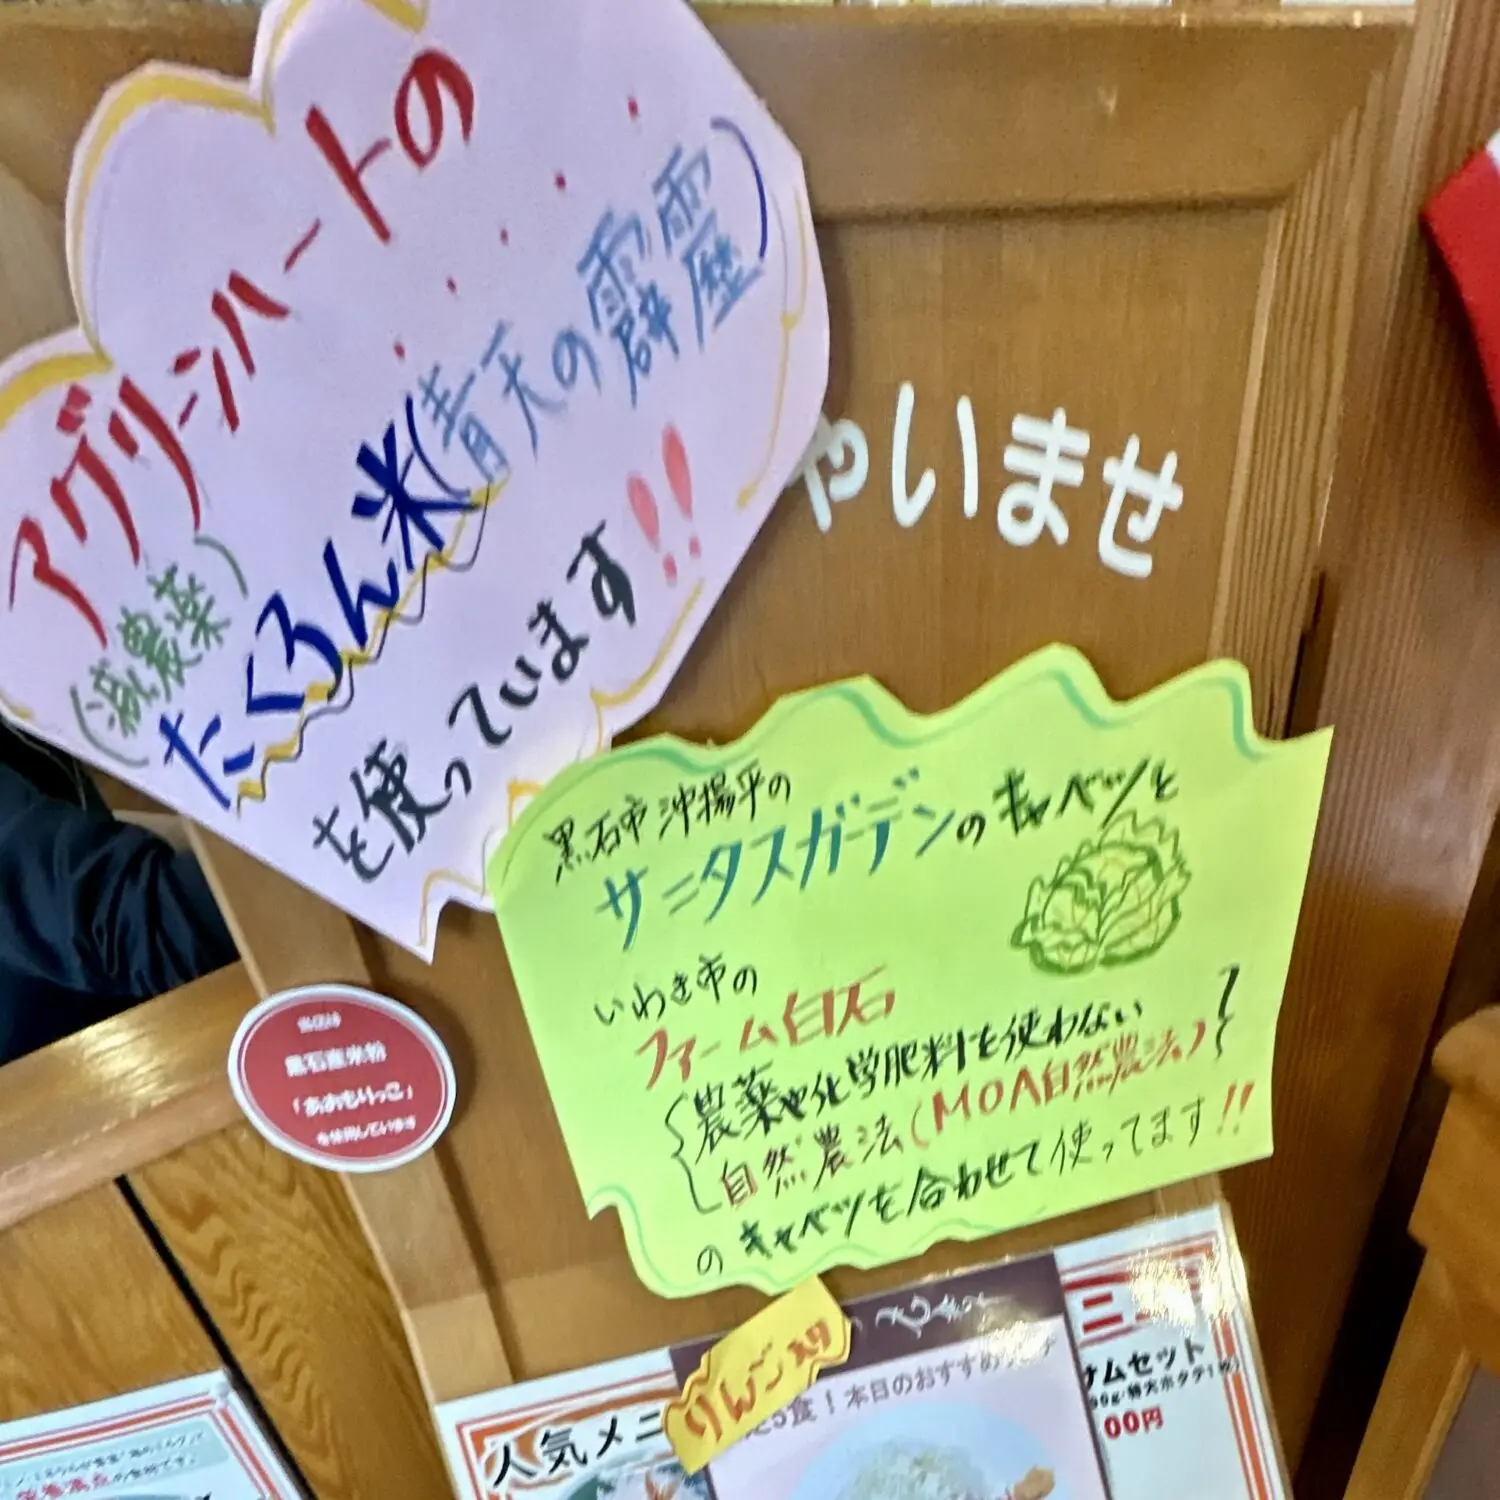 アグリーンハートの
(減農薬)
たくろん米(青天の霹靂)
を使っています!!
やいませ
黒石市沖揚平の
サニタスガーデンのキャベツと
いわき市の
ファーム白石
農薬や化学肥料を使わない
自然農法(MOA自然農法)
のキャベツを合わせて使ってます!!
当店は
黒石産米粉
「あおもりっこ」
を使用しています
りんご
人気メニ
5食!本日のおすすめ
サムセット
00円